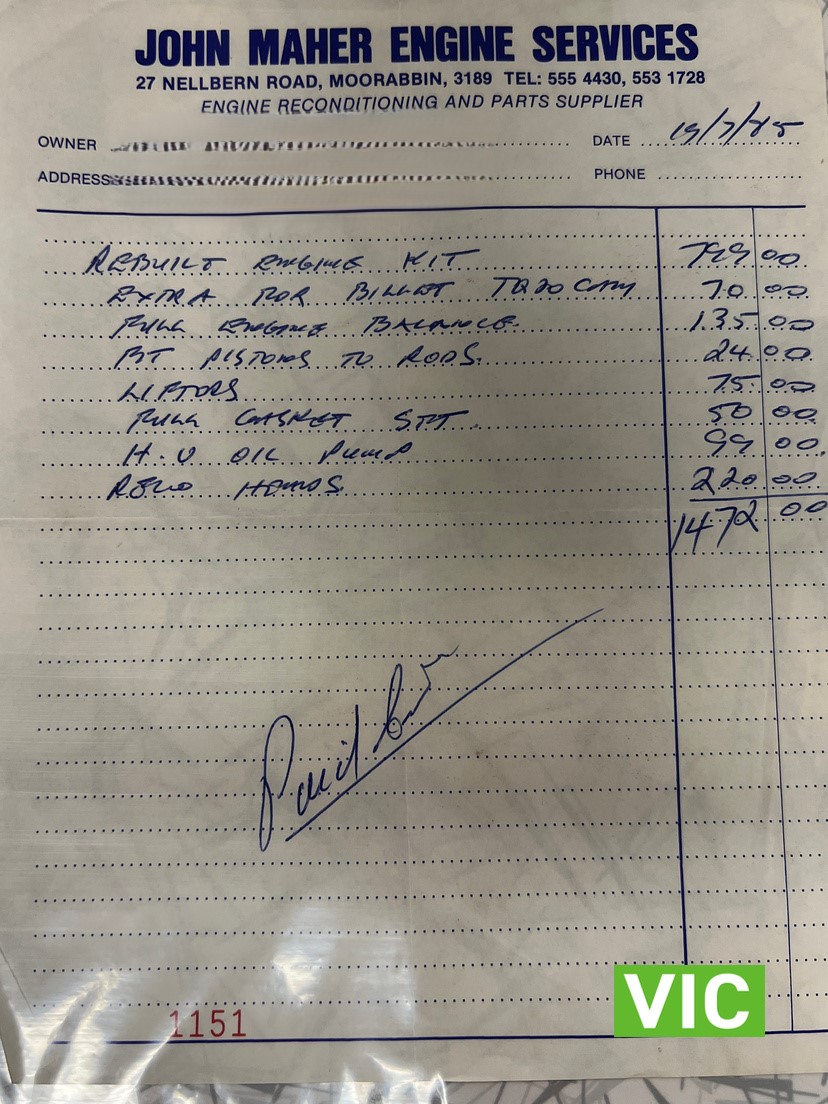 JOHN MAHER ENGINE SERVICES
27 NELLBERN ROAD, MOORABBIN, 3189 TEL: 555 4430, 553 1728
ENGINE RECONDITIONING AND PARTS SUPPLIER
OWNER DATE 19/7/85
ADDRESS PHONE
REBUILT ENGINE KIT 799 00
EXTRA FOR BILLET CAM 70 00
FULL ENGINE BALANCE 135 00
FIT PISTONS TO RODS. 24 00
LIFTORS 75 00
FULL GASKET SET 50 00
H.V OIL PUMP 99 00
RECO HEADS 220 00
1472 00
Paid
1151
VIC